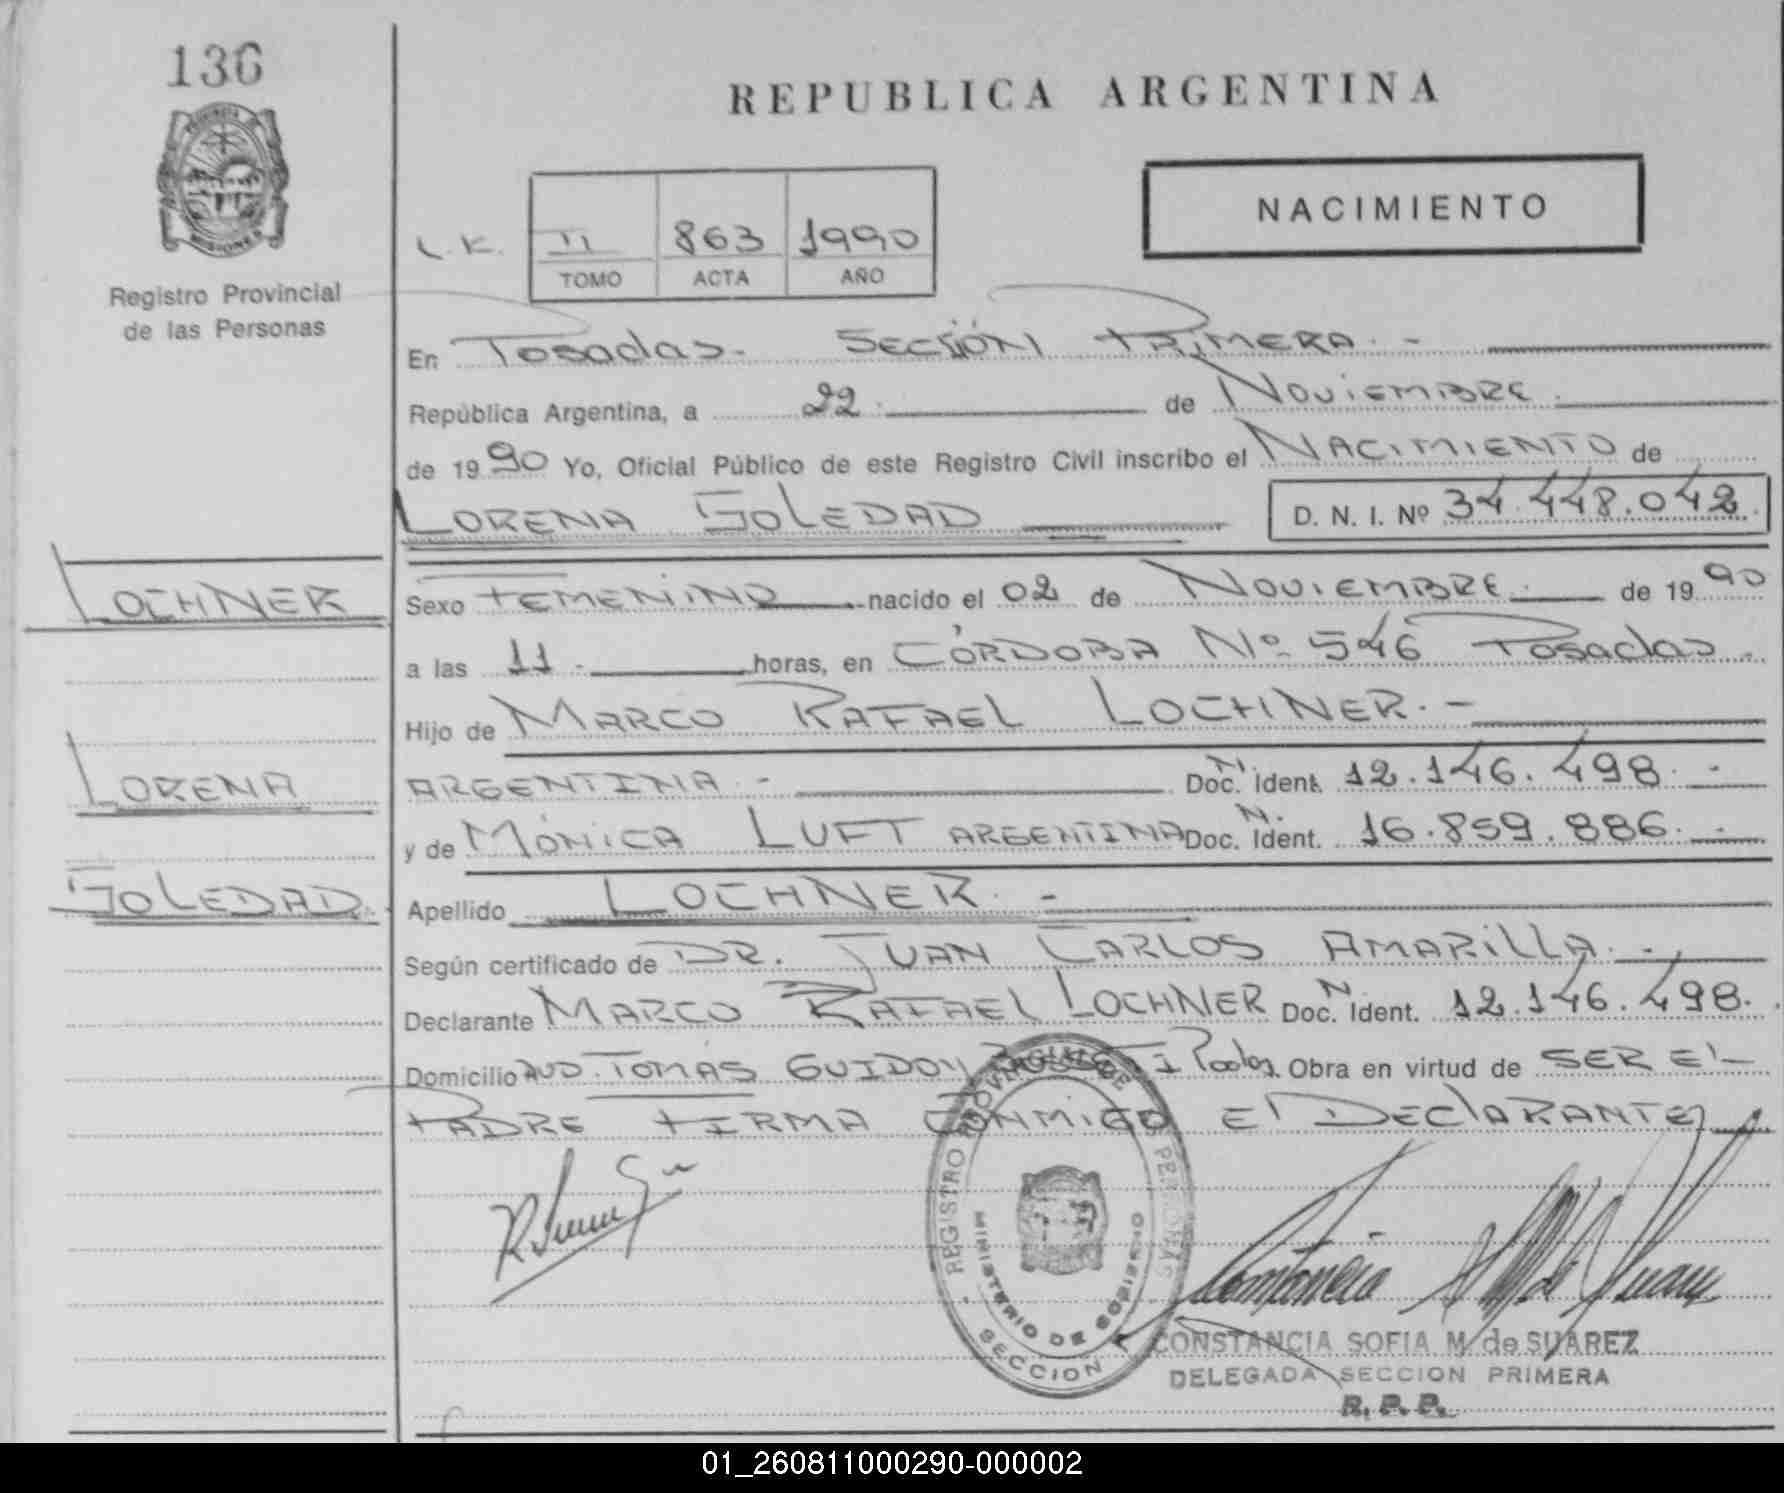 136
REPUBLICA ARGENTINA
PROVINCIA DE
MISIONES
Registro Provincial
de las Personas
L.K.
II 863 1990
TOMO ACTA AÑO
NACIMIENTO
En Posadas. SECCIÓN PRIMERA. -
República Argentina, a 22. de NOVIEMBRE.
de 1990 Yo, Oficial Público de este Registro Civil inscribo el NACIMIENTO de
LORENA SOLEDAD
D. N. I. Nº 34.448.042
LOCHNER
LORENA
SOLEDAD.
Sexo FEMENINO nacido el 02 de NOVIEMBRE. de 1990
a las 11. horas, en CÓRDOBA Nº 546 Posadas.
Hijo de MARCO RAFAEL LOCHNER. -
ARGENTINA. - Doc. N. Ident. 12.146.498. -
y de MÓNICA LUFT ARGENTINA Doc. N. Ident. 16.859.886. -
Apellido LOCHNER. -
Según certificado de DR. JUAN CARLOS AMARILLA. -
Declarante MARCO RAFAEL LOCHNER Doc. N. Ident. 12.146.498.
Domicilio AVD. TOMÁS GUIDO y Obra en virtud de SER El
PADRE FIRMA CONMIGO El DEClARANTE
REGISTRO PROVINCIAL DE PERSONAS
MINISTERIO DE GOBIERNO
SECCION
CONSTANCIA SOFIA M. de SUAREZ
DELEGADA SECCION PRIMERA
R. P. P.
01_260811000290-000002